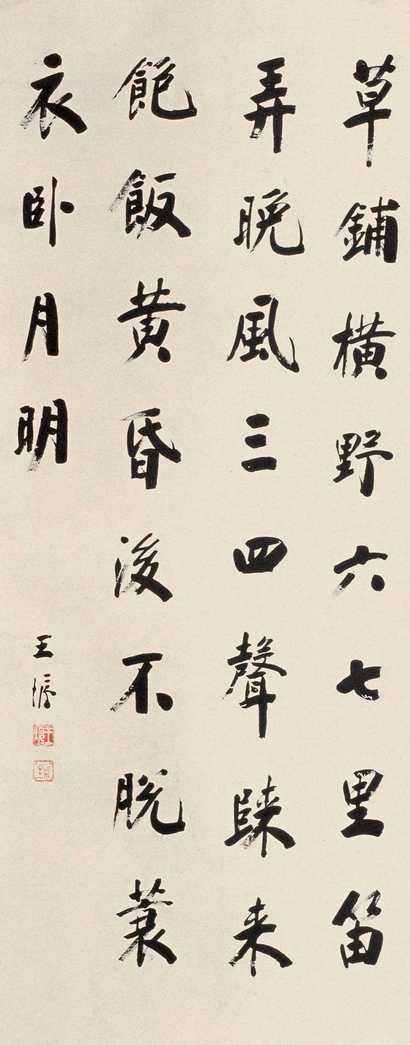 草鋪橫野六七里笛
弄晚風三四聲歸来
飽飯黃昏後不脫蓑
衣卧月明
王垿